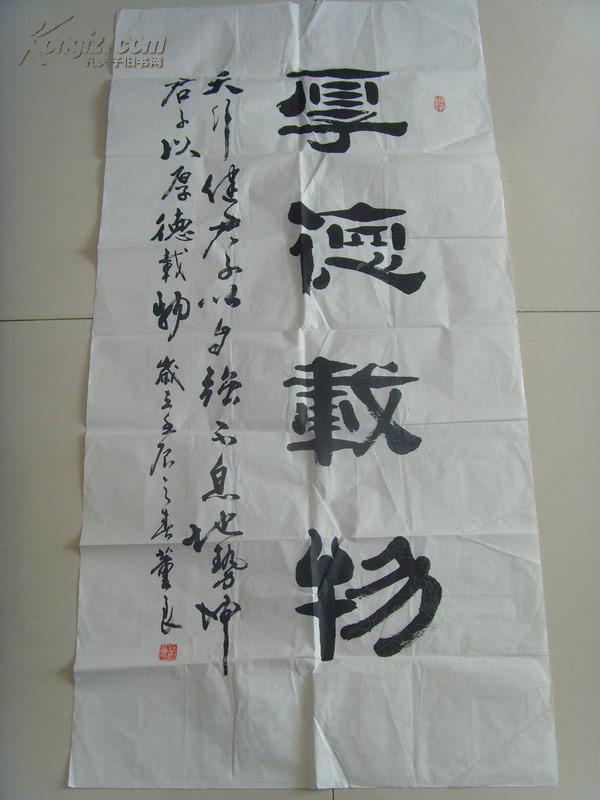 厚德载物
天行健君子以自强不息地势坤
君子以厚德载物 岁在壬辰之春董良
Kongfz.com
孔夫子旧书网